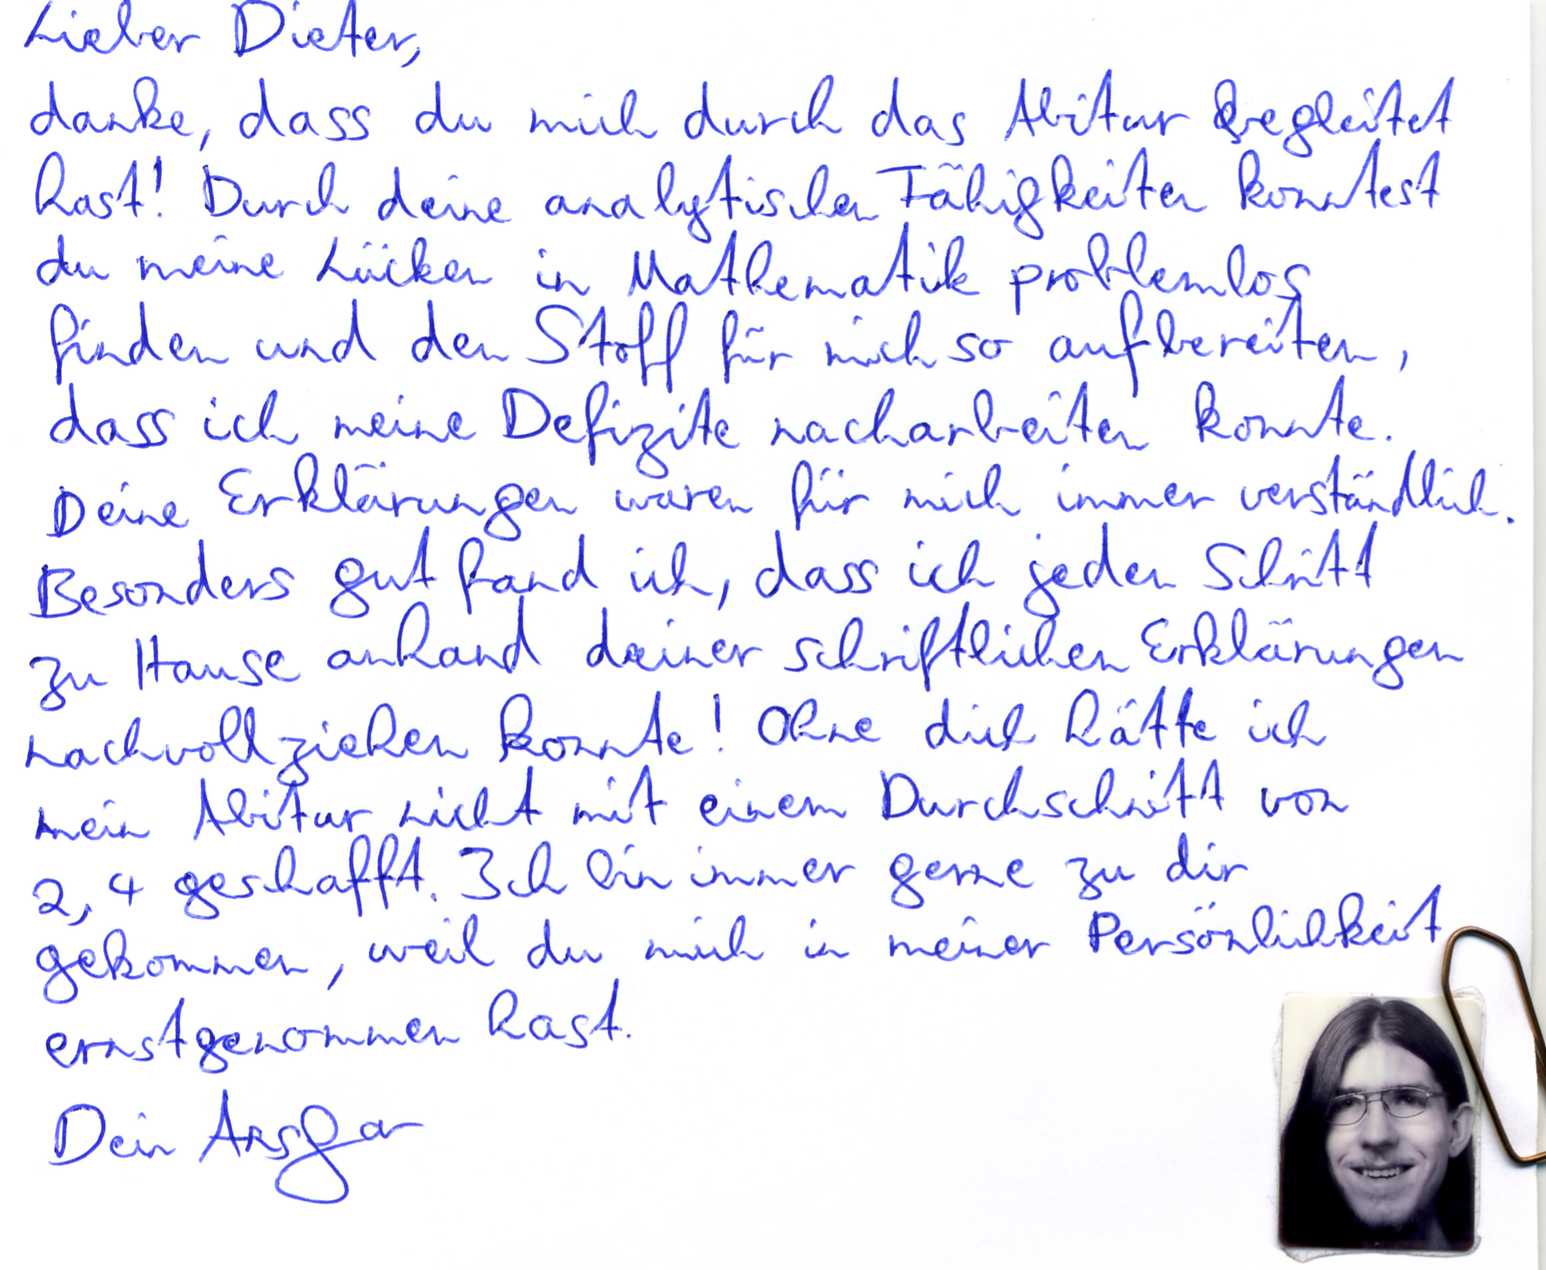 Lieber Dieter,
danke, dass du mich durch das Abitur begleitet
hast! Durch deine analytischen Fähigkeiten konntest
du meine Lücken in Mathematik problemlos
finden und den Stoff für mich so aufbereiten,
dass ich meine Defizite nacharbeiten konnte.
Deine Erklärungen waren für mich immer verständlich.
Besonders gut fand ich, dass ich jeden Schritt
zu Hause anhand deiner schriftlichen Erklärungen
nachvollziehen konnte! Ohne dich hätte ich
mein Abitur nicht mit einem Durchschnitt von
2,4 geschafft. Ich bin immer gerne zu dir
gekommen, weil du mich in meiner Persönlichkeit
ernstgenommen hast.
Dein Ansgar